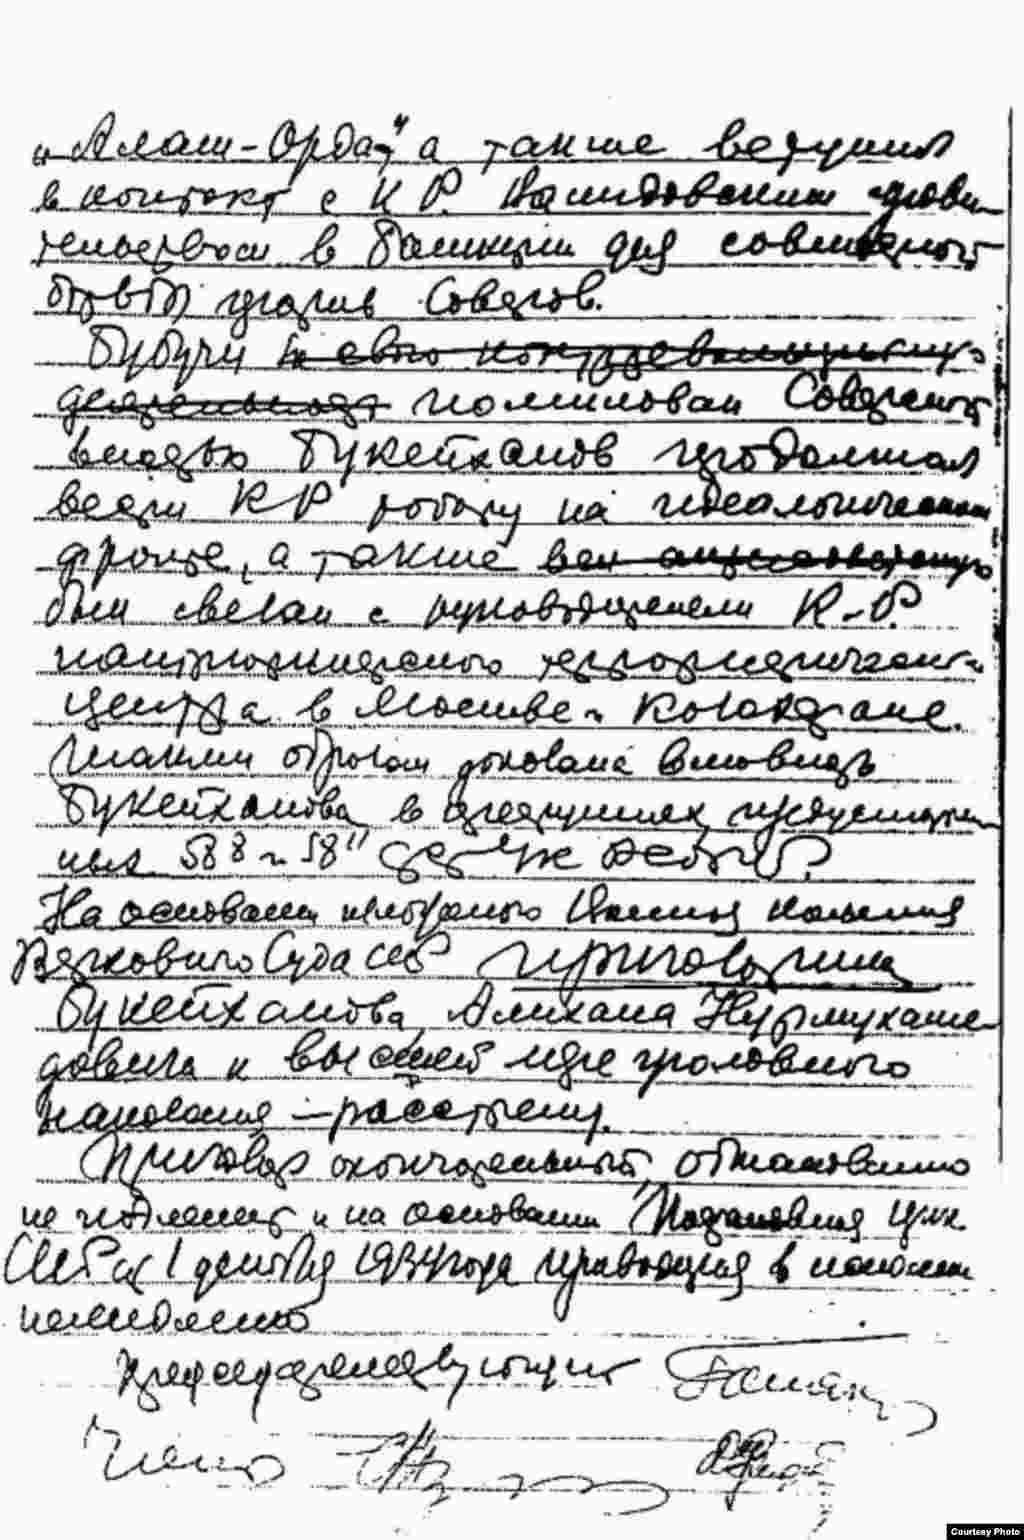 „Алаш-Орда“, а также вступил
в контакт с К.Р. Валидовским прави-
тельством в Башкирии для совместной
борьбы против Советов.
Будучи за свою контрреволюционную
деятельность помилован Советской
властью Букейханов продолжал
вести КР работу на идеологическом
фронте, а также
был связан с руководителями К-Р.
террористического
центра в Москве и Казахстане.
Таким образом доказана виновность
Букейханова в преступлениях, предусмотрен-
ных 58⁸ и 58¹¹ УК РСФСР.
На основании изложенного Военная коллегия
Верховного Суда СССР приговорила
Букейханова, Алихана Нурмухаме-
довича к высшей мере уголовного
наказания – расстрелу.
Приговор окончательный, обжалованию
не подлежит и на основании Постановления ЦИК
СССР от 1 декабря 1934 года приводится в исполнение
немедленно
Председательствующий
Члены
Courtesy Photo